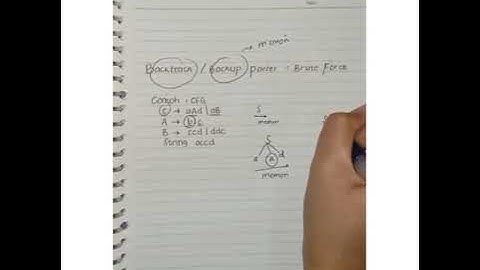 memori
Backtrack / Backup parser : Brute Force
Contoh : CFG
S → aAd | aB
A → b | c
B → ccd | ddc
String accd
S
memori
S
a A d
memori